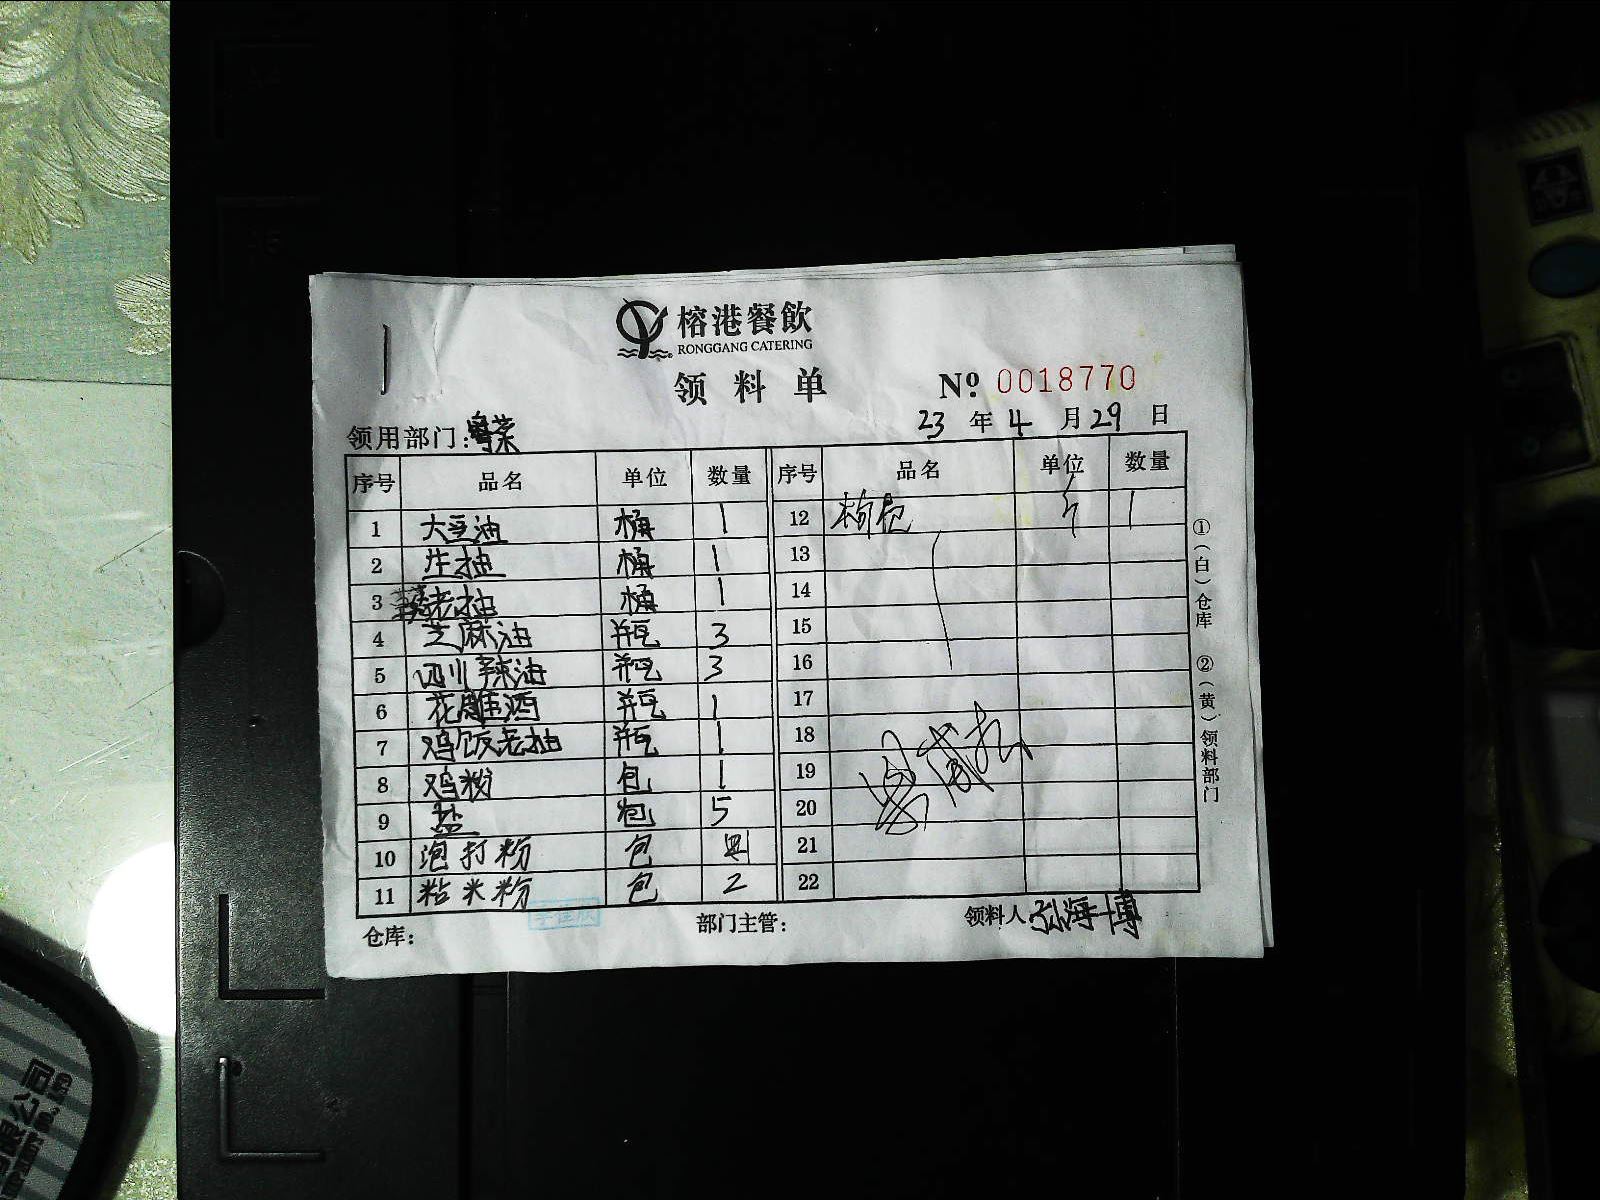 榕港餐飲
RONGGANG CATERING
领料单
№ 0018770
领用部门：粤菜 23年4月29日
序号 品名 单位 数量 序号 品名 单位 数量
1 大豆油 桶 1 12 斤 1
2 生抽 桶 1 13
3 老抽 桶 1 14
4 芝麻油 瓶 3 15
5 四川辣油 瓶 3 16
6 花雕酒 瓶 1 17
7 鸡饭老抽 瓶 1 18
8 鸡粉 包 1 19
9 盐 包 5 20
10 泡打粉 包 21
11 粘米粉 包 2 22
仓库： 部门主管： 领料人 海博
①(白)仓库 ②(黄)领料部门
公司